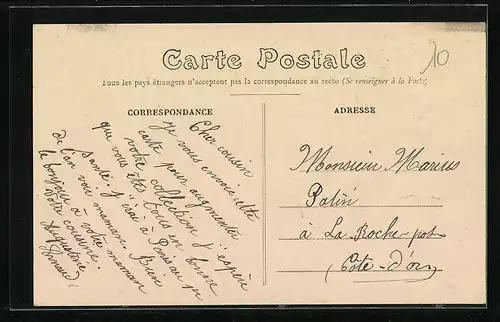 10
Carte Postale
Tous les pays étrangers n'acceptent pas la correspondance au recto (Se renseigner à la Poste)
CORRESPONDANCE
Cher cousin
je vous envoie cette
carte pour augmenter
votre collection j'espère
que vous êtes tous en bonne
santé. J'irai à Paris au
de l'an voir maman. Bien
le bonjour à votre maman
Votre cousine.
Augustine
ADRESSE
Monsieur Marius
Patin
à La Roche-pot
Côte-d'or